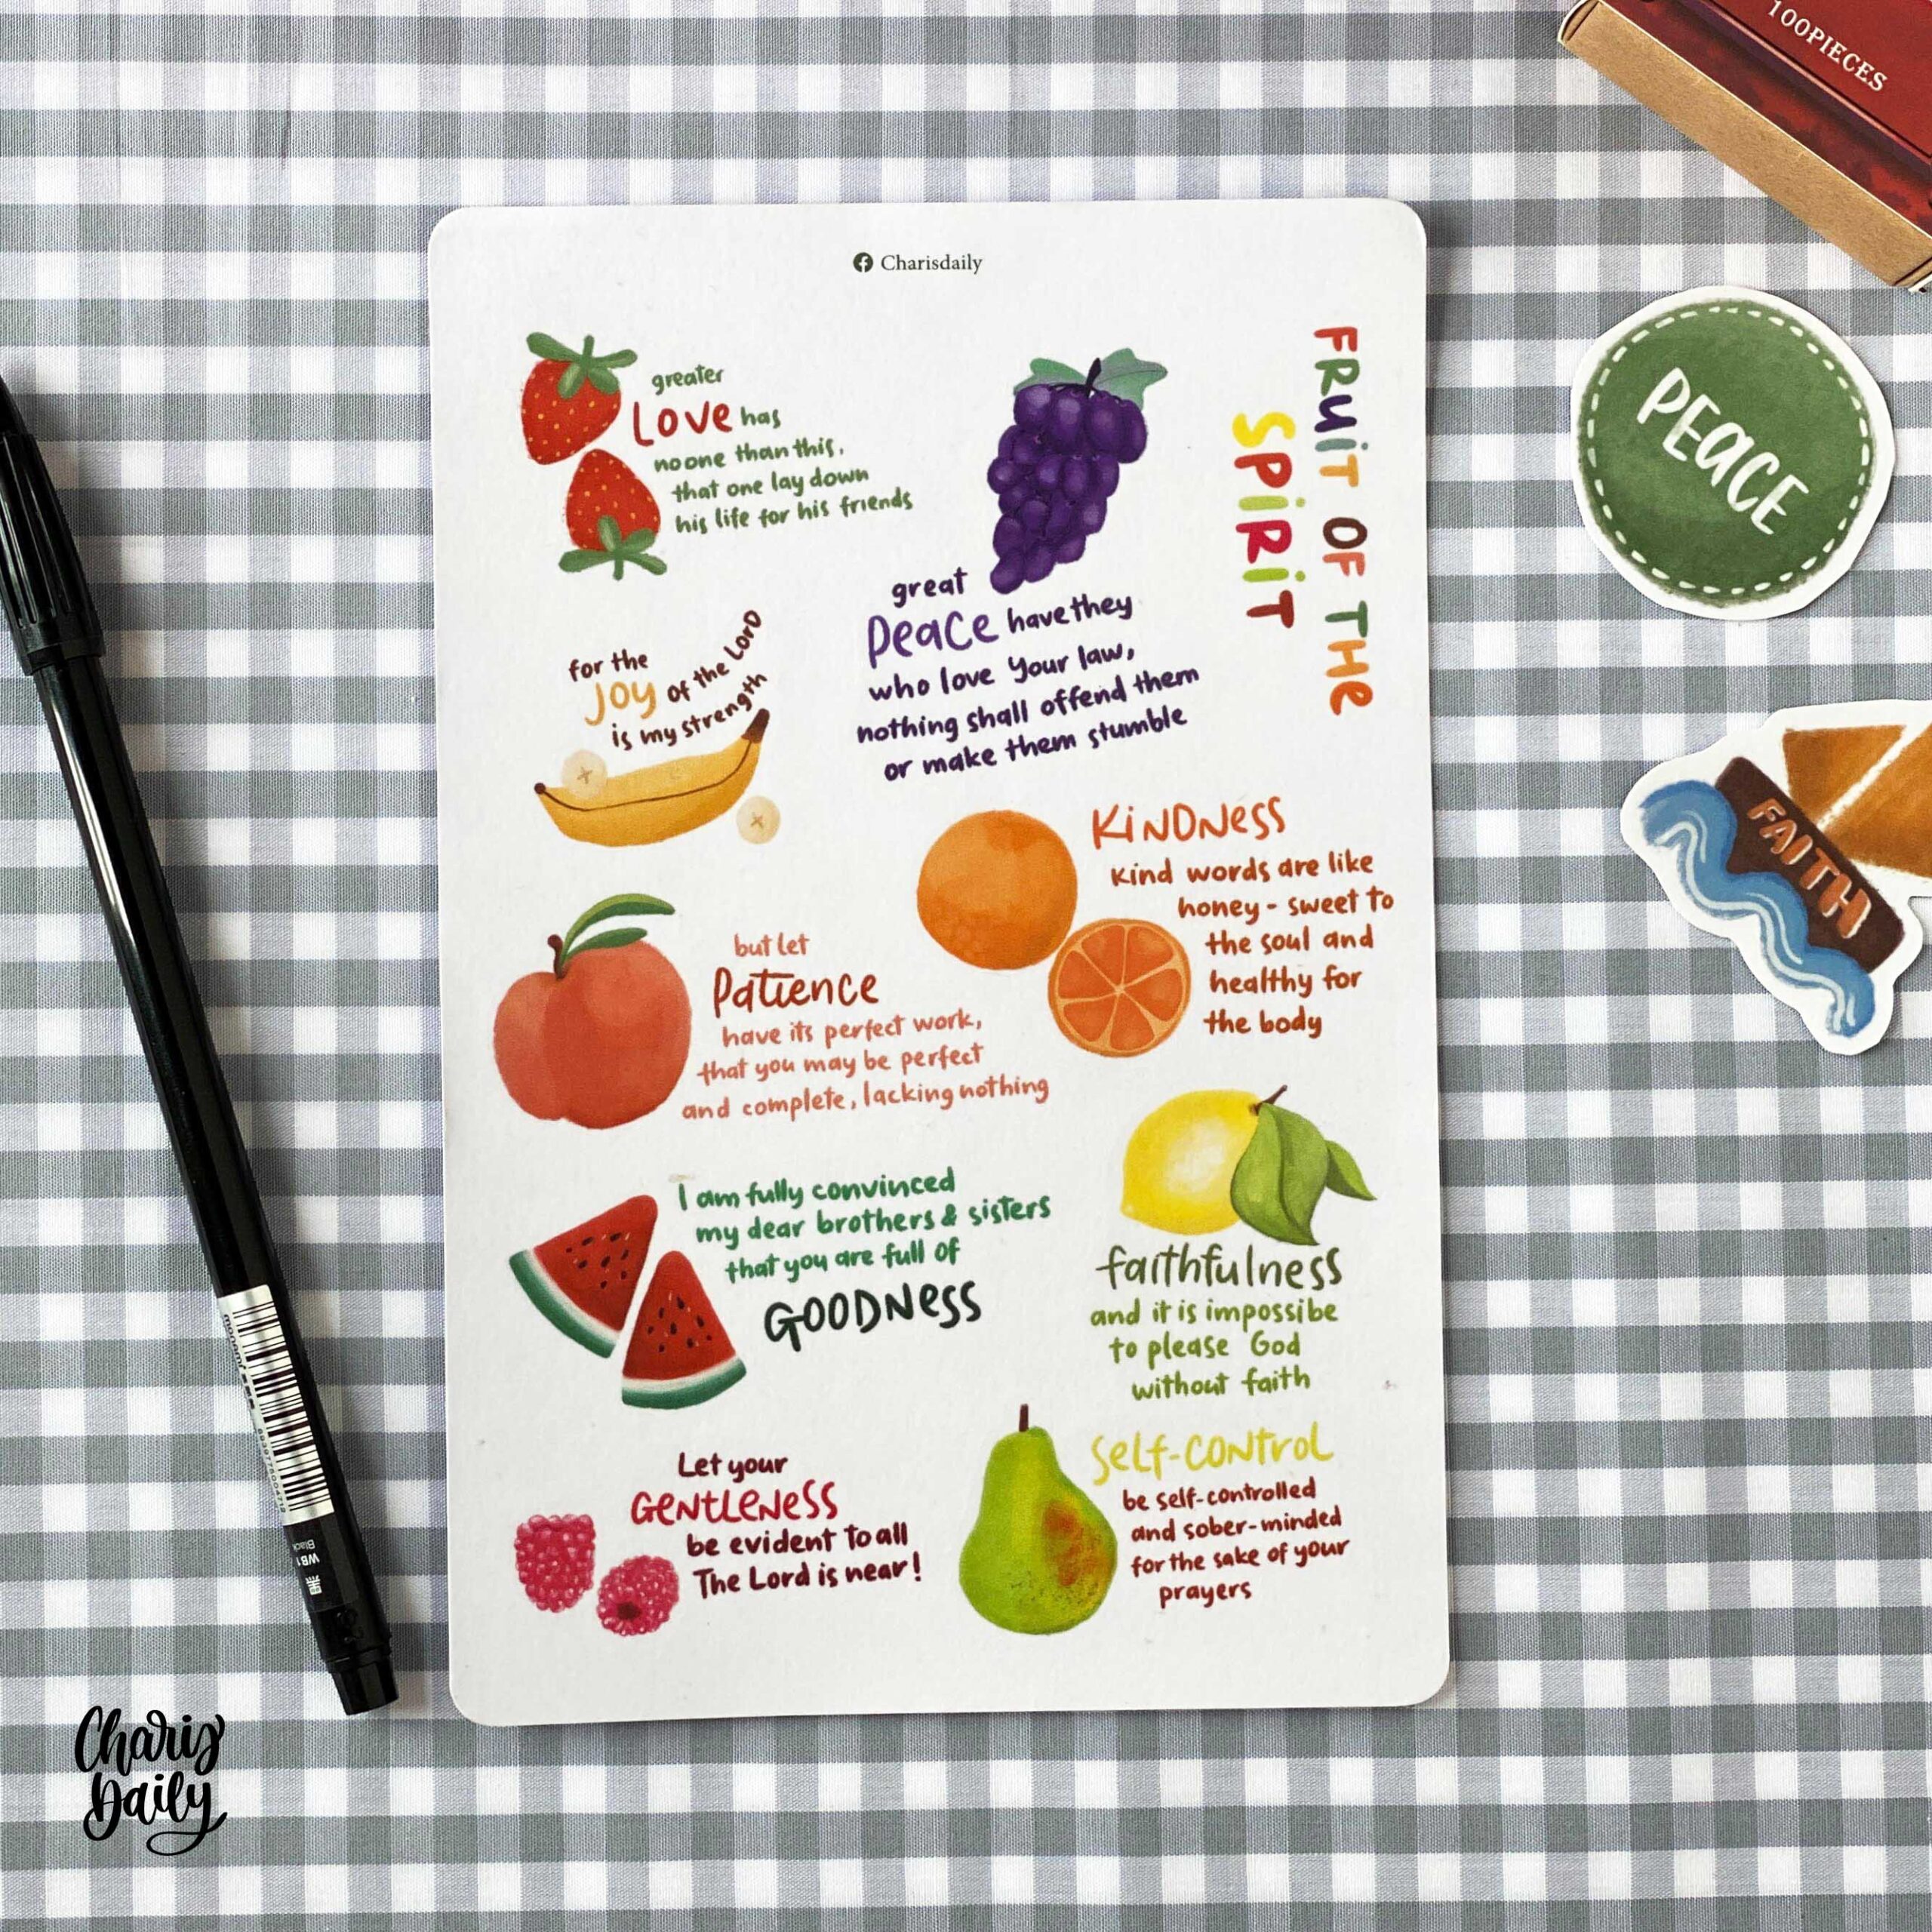 100PIECES
Charisdaily
FRUIT OF THE
SPIRIT
greater
Love has
no one than this,
that one lay down
his life for his friends
great
Peace have they
who love your law,
nothing shall offend them
or make them stumble
for the
Joy of the Lord
is my strength
KINDNESS
Kind words are like
honey - sweet to
the soul and
healthy for
the body
but let
Patience
have its perfect work,
that you may be perfect
and complete, lacking nothing
I am fully convinced
my dear brothers & sisters
that you are full of
GOODNESS
faithfulness
and it is impossibe
to please God
without faith
Let your
GENTLENESS
be evident to all
The Lord is near!
Self-CONTROL
be self-controlled
and sober-minded
for the sake of your
prayers
PEACE
FAITH
Black
黑
Charis
Daily